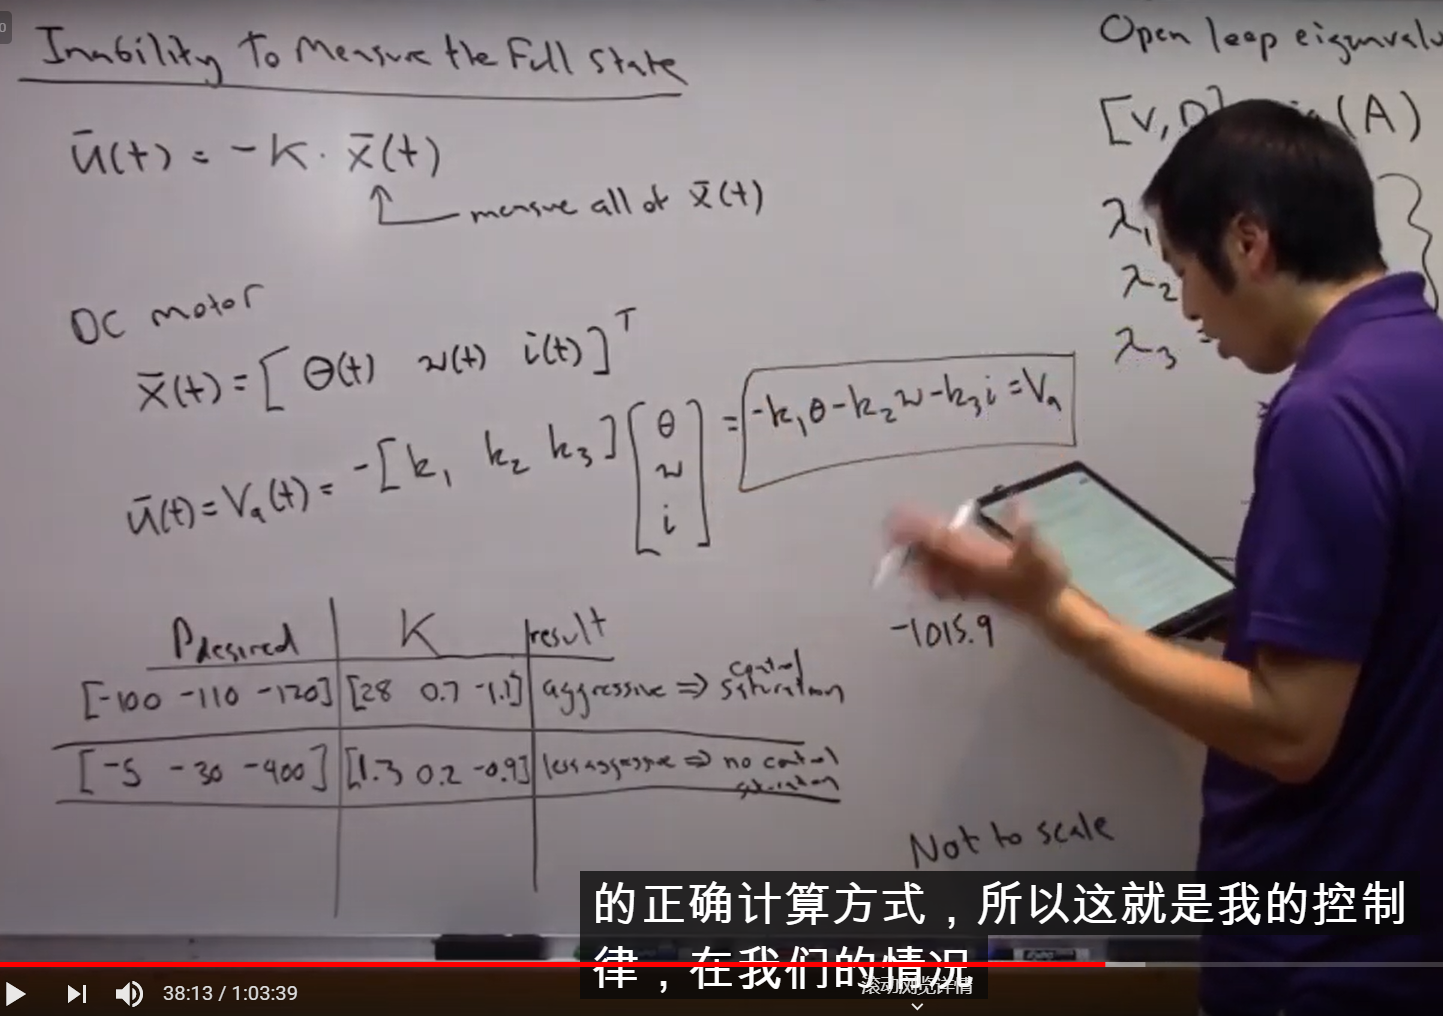 Inability To Measure the Full State
ū(t) = -K · x̄(t)
measure all of x̄(t)
DC motor
x̄(t) = [ θ(t) w(t) i(t) ]ᵀ
ū(t) = Vₐ(t) = -[ k₁ k₂ k₃ ] [ θ w i ] = -k₁θ - k₂w - k₃i = Vₐ
Pdesired K result
[-100 -110 -120] [28 0.7 -1.1] aggressive ⇒ control saturation
[-5 -30 -400] [1.3 0.2 -0.9] less aggressive ⇒ no control saturation
Open loop eigenvalu
[V, D] (A)
λ₁
λ₂
λ₃ =
-1015.9
Not to scale
的正确计算方式，所以这就是我的控制
律，在我们的情况
滚动浏览详情
38:13 / 1:03:39